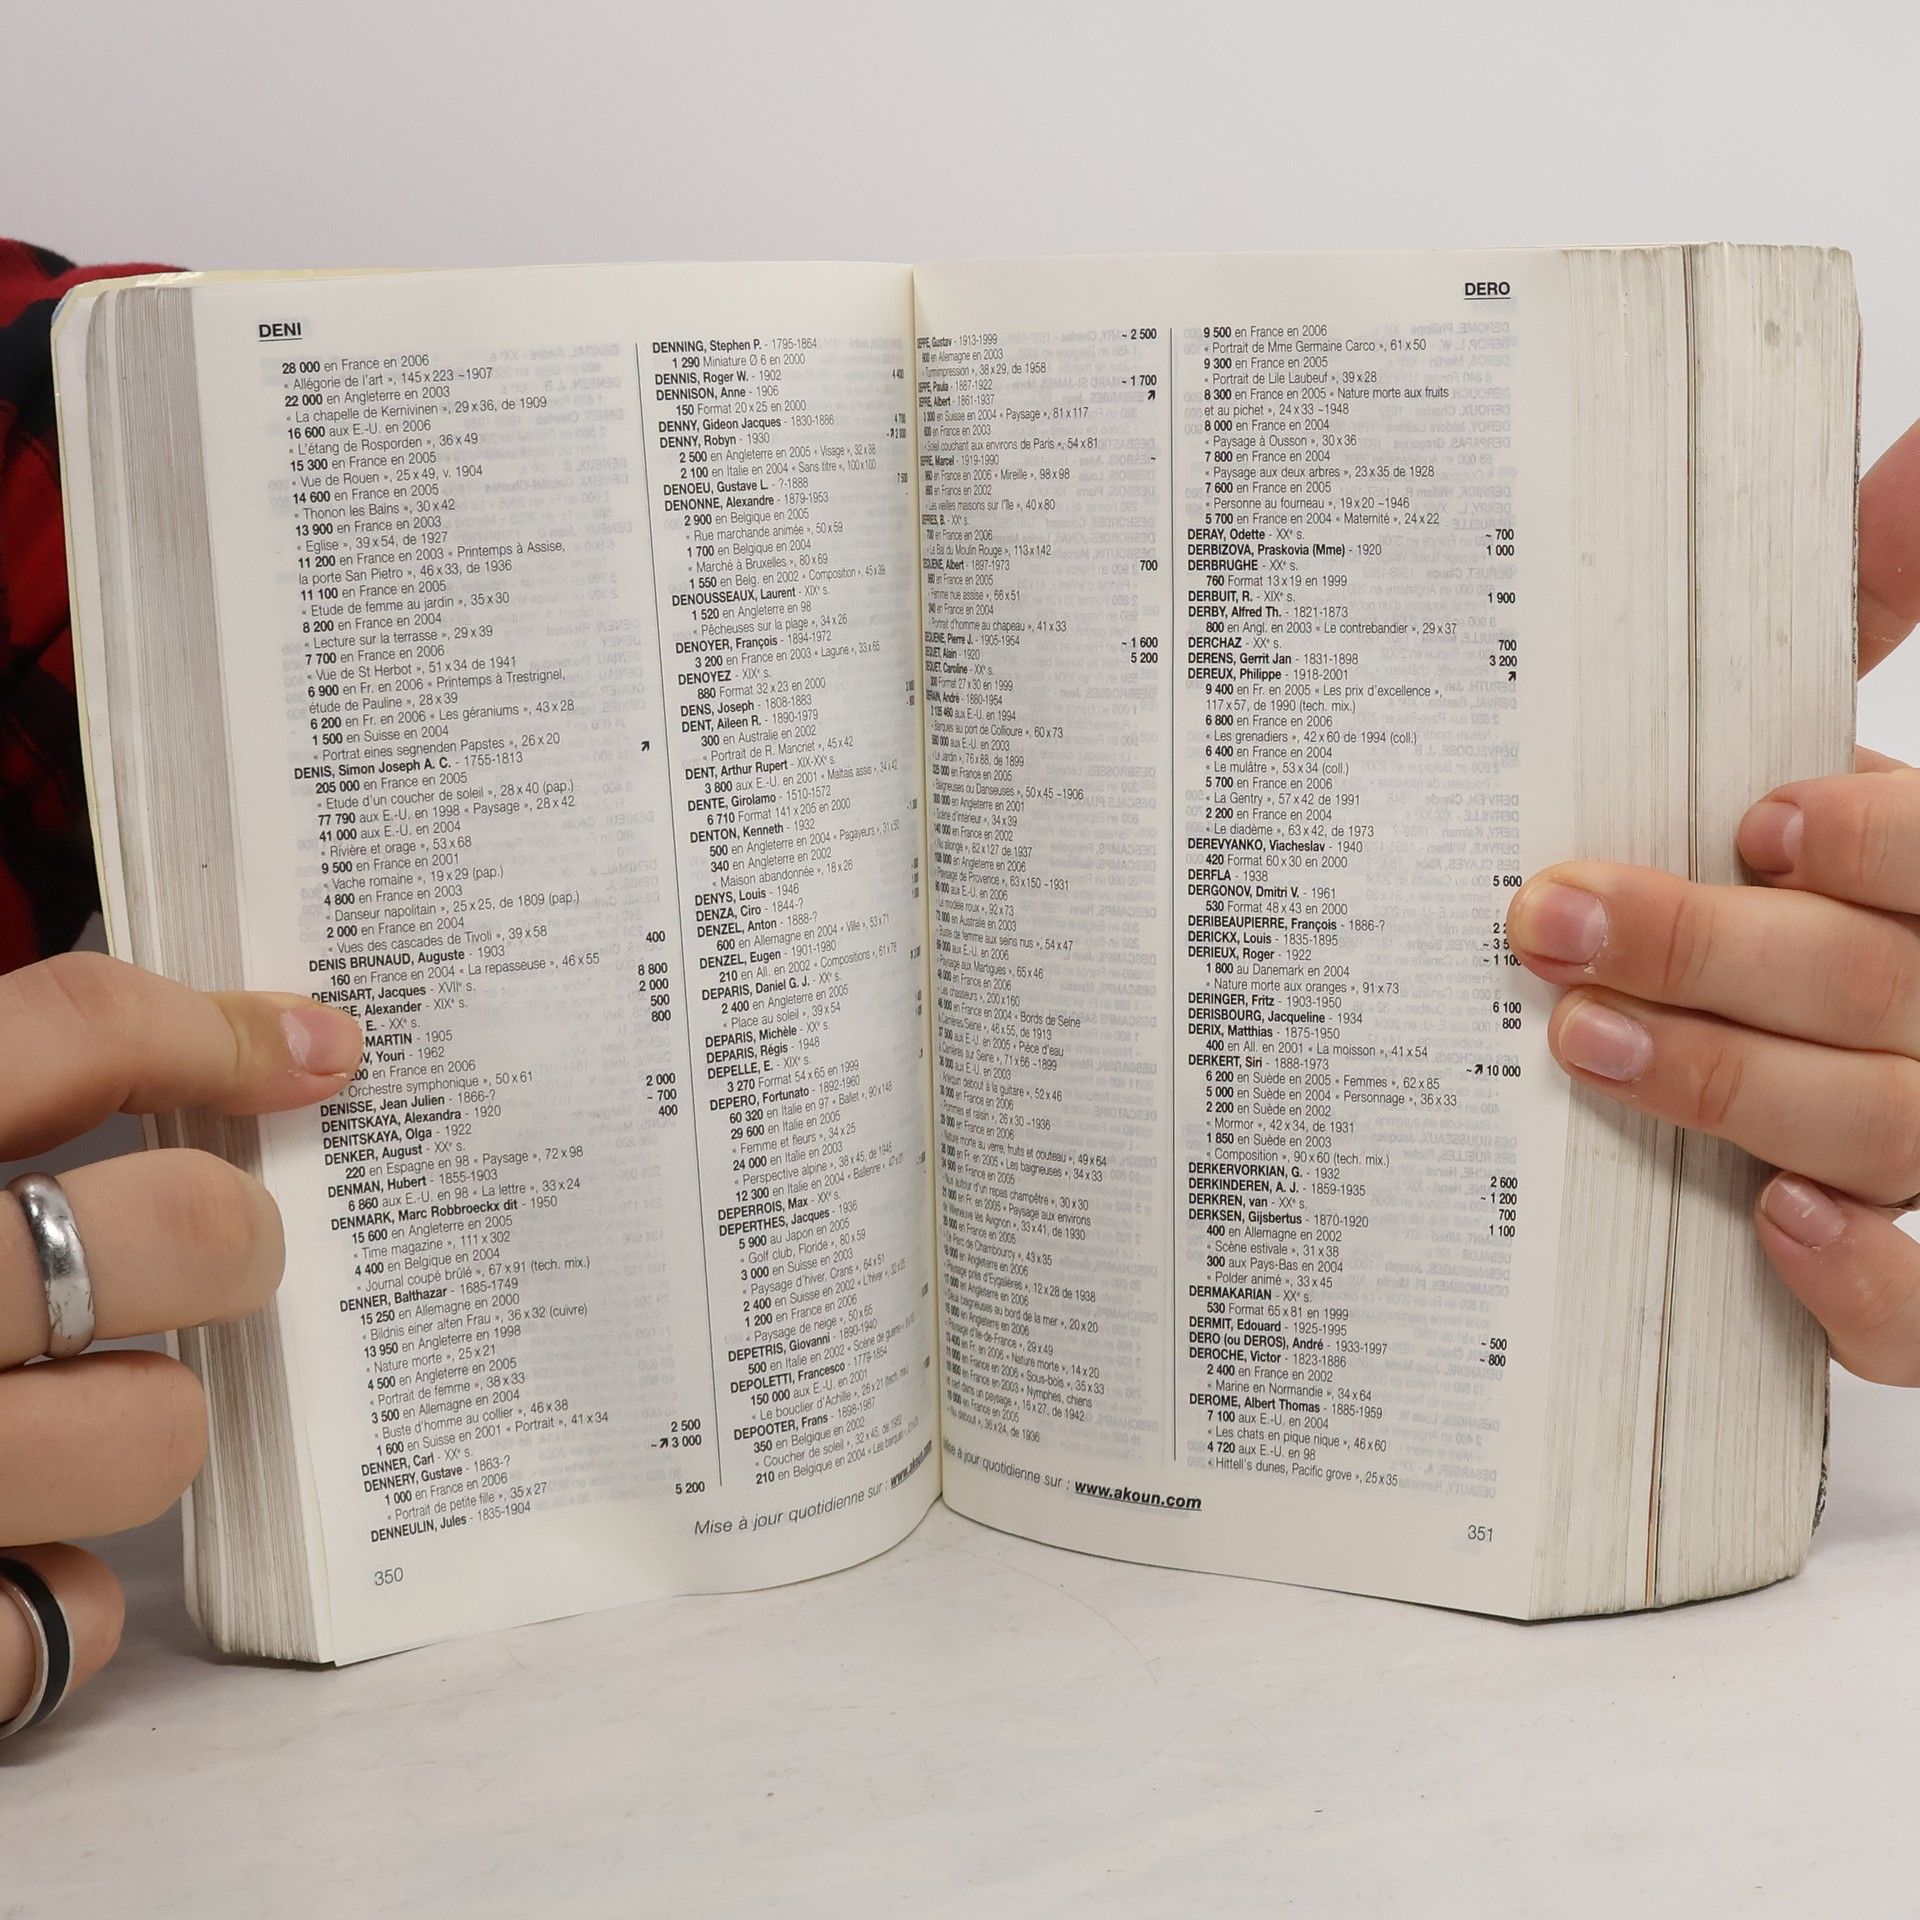 DENI
28 000 en France en 2006
« Allégorie de l'art », 145 x 223 ~1907
22 000 en Angleterre en 2003
« La chapelle de Kernivinen », 29 x 36, de 1909
16 600 aux E.-U. en 2006
« L'étang de Rosporden », 36 x 49
15 300 en France en 2005
« Vue de Rouen », 25 x 49, v. 1904
14 600 en France en 2005
« Thonon les Bains », 30 x 42
13 900 en France en 2003
« Eglise », 39 x 54, de 1927
11 200 en France en 2003 « Printemps à Assise,
la porte San Pietro », 46 x 33, de 1936
11 100 en France en 2005
« Etude de femme au jardin », 35 x 30
8 200 en France en 2004
« Lecture sur la terrasse », 29 x 39
7 700 en France en 2006
« Vue de St Herbot », 51 x 34 de 1941
6 900 en Fr. en 2006 « Printemps à Trestrignel,
étude de Pauline », 28 x 39
6 200 en Fr. en 2006 « Les géraniums », 43 x 28
1 500 en Suisse en 2004
« Portrat eines segnenden Papstes », 26 x 20
DENIS, Simon Joseph A. C. - 1755-1813 ↗
205 000 en France en 2005
« Etude d'un coucher de soleil », 28 x 40 (pap.)
77 790 aux E.-U. en 1998 « Paysage », 28 x 42
41 000 aux E.-U. en 2004
« Rivière et orage », 53 x 68
9 500 en France en 2001
« Vache romaine », 19 x 29 (pap.)
4 800 en France en 2003
« Danseur napolitain », 25 x 25, de 1809 (pap.)
2 000 en France en 2004
« Vues des cascades de Tivoli », 39 x 58
DENIS BRUNAUD, Auguste - 1903 400
160 en France en 2004 « La repasseuse », 46 x 55
DENISART, Jacques - XVIIe s. 8 800
SE, Alexander - XIXe s. 2 000
E. - XXe s. 500
-MARTIN - 1905 800
V, Youri - 1962
00 en France en 2006
« Orchestre symphonique », 50 x 61
DENISSE, Jean Julien - 1866-? 2 000
DENITSKAYA, Alexandra - 1920 ~ 700
DENITSKAYA, Olga - 1922 400
DENKER, August - XXe s.
220 en Espagne en 98 « Paysage », 72 x 98
DENMAN, Hubert - 1855-1903
6 860 aux E.-U. en 98 « La lettre », 33 x 24
DENMARK, Marc Robbroeckx dit - 1950
15 600 en Angleterre en 2005
« Time magazine », 111 x 302
4 400 en Belgique en 2004
« Journal coupé brûlé », 67 x 91 (tech. mix.)
DENNER, Balthazar - 1685-1749
15 250 en Allemagne en 2000
« Bildnis einer alten Frau », 36 x 32 (cuivre)
13 950 en Angleterre en 1998
« Nature morte », 25 x 21
4 500 en Angleterre en 2005
« Portrait de femme », 38 x 33
3 500 en Allemagne en 2004
« Buste d'homme au collier », 46 x 38
1 600 en Suisse en 2001 « Portrait », 41 x 34
DENNER, Carl - XXe s. 2 500
DENNERY, Gustave - 1863-? ~↗ 3 000
1 000 en France en 2006
« Portrait de petite fille », 35 x 27
DENNEULIN, Jules - 1835-1904 5 200
DENNING, Stephen P. - 1795-1864
1 290 Miniature Ø 6 en 2000
DENNIS, Roger W. - 1902 4 400
DENNISON, Anne - 1906
150 Format 20 x 25 en 2000
DENNY, Gideon Jacques - 1830-1886 4 700
DENNY, Robyn - 1930
2 500 en Angleterre en 2005 « Visage », 32 x 38
2 100 en Italie en 2004 « Sans titre », 100 x 100
DENOEU, Gustave L. - ?-1888 7 500
DENONNE, Alexandre - 1879-1953
2 900 en Belgique en 2005
« Rue marchande animée », 50 x 59
1 700 en Belgique en 2004
« Marché à Bruxelles », 80 x 69
1 550 en Belg. en 2002 « Composition », 45 x 39
DENOUSSEAUX, Laurent - XIXe s.
1 520 en Angleterre en 98
« Pêcheuses sur la plage », 34 x 26
DENOYER, François - 1894-1972
3 200 en France en 2003 « Lagune », 33 x 65
DENOYEZ - XIXe s.
880 Format 32 x 23 en 2000
DENS, Joseph - 1808-1883
DENT, Aileen R. - 1890-1979
300 en Australie en 2002
« Portrait de R. Mancriet », 45 x 42
DENT, Arthur Rupert - XIX-XXe s.
3 800 aux E.-U. en 2001 « Maltais assis », 34 x 42
DENTE, Girolamo - 1510-1572
6 710 Format 141 x 205 en 2000
DENTON, Kenneth - 1932
500 en Angleterre en 2004 « Pagayeurs », 31 x 50
340 en Angleterre en 2002
« Maison abandonnée », 18 x 26
DENYS, Louis - 1946
DENZA, Ciro - 1844-?
DENZEL, Anton - 1888-?
600 en Allemagne en 2004 « Ville », 53 x 71
DENZEL, Eugen - 1901-1980
210 en All. en 2002 « Compositions », 61 x 76
DEPARIS, Daniel G. J. - XXe s.
2 400 en Angleterre en 2005
« Place au soleil », 39 x 54
DEPARIS, Michèle - XXe s.
DEPARIS, Régis - 1948
DEPELLE, E. - XIXe s.
3 270 Format 54 x 65 en 1999
DEPERO, Fortunato - 1892-1960
60 320 en Italie en 97 « Ballet », 90 x 148
29 600 en Italie en 2005
« Femme et fleurs », 34 x 25
24 000 en Italie en 2003
« Perspective alpine », 38 x 45, de 1945
12 300 en Italie en 2004 « Ballerine »
DEPERROIS, Max - XXe s.
DEPERTHES, Jacques - 1936
5 900 au Japon en 2005
« Golf club, Floride », 80 x 59
3 000 en Suisse en 2003
« Paysage d'hiver, Crans », 64 x 51
2 400 en Suisse en 2002 « L'hiver »
1 200 en France en 2006
« Paysage de neige », 50 x 65
DEPETRIS, Giovanni - 1890-1940
500 en Italie en 2002 « Scène de guerre »
DEPOLETTI, Francesco - 1779-1854
150 000 aux E.-U. en 2001
« Le bouclier d'Achille », 26 x 21
DEPOOTER, Frans - 1898-1987
350 en Belgique en 2002
« Coucher de soleil », 32 x 45, de 1960
210 en Belgique en 2004 « Les barques »
Mise à jour quotidienne sur : www.akoun.com
350
DERO
EPPE, Gustav - 1913-1999 ~ 2 500
en Allemagne en 2003
« Turmimpression », 38 x 29, de 1958
EPPE, Paula - 1887-1922 ~ 1 700
EFRE, Albert - 1861-1937 ↗
en Suisse en 2004 « Paysage », 81 x 117
en France en 2003
« Soleil couchant aux environs de Paris », 54 x 81
EFRE, Marcel - 1919-1990 ~
en France en 2006 « Mireille », 98 x 98
en France en 2002
« Les vieilles maisons sur l'île », 40 x 80
B. - XXe s.
en France en 2006
« Le Bal du Moulin Rouge », 113 x 142
EQUENE, Albert - 1897-1973 700
en France en 2005
« Femme nue assise », 66 x 51
en France en 2004
« Portrait d'homme au chapeau », 41 x 33
EQUENE, Pierre J. - 1905-1954 ~ 1 600
EQUET, Alain - 1920 5 200
EQUET, Caroline - XXe s.
Format 27 x 30 en 1999
ERAIN, André - 1880-1954
aux E.-U. en 1994
« Barques au port de Collioure », 60 x 73
aux E.-U. en 2003
« Le jardin », 76 x 88, de 1899
en France en 2005
« Baigneuses ou Danseuses », 50 x 45 ~1906
en Angleterre en 2001
« Scène d'intérieur », 34 x 39
en France en 2002
« Nu allongé », 82 x 127 de 1937
en Angleterre en 2006
« Paysage de Provence », 63 x 150 ~1931
aux E.-U. en 2006
« Le modèle roux », 92 x 73
en Australie en 2003
« Buste de femme aux seins nus », 54 x 47
aux E.-U. en 2006
« Paysage aux Martigues », 65 x 46
en France en 2006
« Les chasseurs », 200 x 160
en France en 2004 « Bords de Seine
à Carrières/Seine », 46 x 55, de 1913
aux E.-U. en 2005 « Pièce d'eau
à Carrières sur Seine », 71 x 66 ~1899
aux E.-U. en 2003
« Arlequin debout à la guitare », 52 x 46
en France en 2006
« Pommes et raisin », 26 x 30 ~1936
en France en 2006
« Nature morte au verre, fruits et couteau », 49 x 64
en Fr. en 2005 « Les baigneuses », 34 x 33
en France en 2005
« Nus autour d'un repas champêtre », 30 x 30
en Fr. en 2005 « Paysage aux environs
de Villeneuve lès Avignon », 33 x 41, de 1930
en France en 2005
« Le Parc de Chambourcy », 43 x 35
en Angleterre en 2006
« Paysage près d'Eygalières », 12 x 28 de 1938
en Angleterre en 2006
« Deux baigneuses au bord de la mer », 20 x 20
en Angleterre en 2006
« Paysage d'Ile-de-France », 29 x 49
en Fr. en 2006 « Nature morte », 14 x 20
en France en 2006 « Sous-bois », 35 x 33
en France en 2003 « Nymphes, chiens
et cerf dans un paysage », 16 x 27, de 1942
en France en 2005
« Nu debout », 36 x 24, de 1936
9 500 en France en 2006
« Portrait de Mme Germaine Carco », 61 x 50
9 300 en France en 2005
« Portrait de Lile Laubeuf », 39 x 28
8 300 en France en 2005 « Nature morte aux fruits
et au pichet », 24 x 33 ~1948
8 000 en France en 2004
« Paysage à Ousson », 30 x 36
7 800 en France en 2004
« Paysage aux deux arbres », 23 x 35 de 1928
7 600 en France en 2005
« Personne au fourneau », 19 x 20 ~1946
5 700 en France en 2004 « Maternité », 24 x 22
DERAY, Odette - XXe s. ~ 700
DERBIZOVA, Praskovia (Mme) - 1920 1 000
DERBRUGHE - XXe s.
760 Format 13 x 19 en 1999
DERBUIT, R. - XIXe s. 1 900
DERBY, Alfred Th. - 1821-1873
800 en Angl. en 2003 « Le contrebandier », 29 x 37
DERCHAZ - XXe s. 700
DERENS, Gerrit Jan - 1831-1898 3 200
DEREUX, Philippe - 1918-2001 ↗
9 400 en Fr. en 2005 « Les prix d'excellence »,
117 x 57, de 1990 (tech. mix.)
6 800 en France en 2006
« Les grenadiers », 42 x 60 de 1994 (coll.)
6 400 en France en 2004
« Le mulâtre », 53 x 34 (coll.)
5 700 en France en 2006
« La Gentry », 57 x 42 de 1991
2 200 en France en 2004
« Le diadème », 63 x 42, de 1973
DEREVYANKO, Viacheslav - 1940
420 Format 60 x 30 en 2000
DERFLA - 1938 5 600
DERGONOV, Dmitri V. - 1961
530 Format 48 x 43 en 2000
DERIBEAUPIERRE, François - 1886-? 2
DERICKX, Louis - 1835-1895 ~ 3 5
DERIEUX, Roger - 1922 ~ 1 100
1 800 au Danemark en 2004
« Nature morte aux oranges », 91 x 73
DERINGER, Fritz - 1903-1950 6 100
DERISBOURG, Jacqueline - 1934 800
DERIX, Matthias - 1875-1950
400 en All. en 2001 « La moisson », 41 x 54
DERKERT, Siri - 1888-1973 ~↗ 10 000
6 200 en Suède en 2005 « Femmes », 62 x 85
5 000 en Suède en 2004 « Personnage », 36 x 33
2 200 en Suède en 2002
« Mormor », 42 x 34, de 1931
1 850 en Suède en 2003
« Composition », 90 x 60 (tech. mix.)
DERKERVORKIAN, G. - 1932 2 600
DERKINDEREN, A. J. - 1859-1935 ~ 1 200
DERKREN, van - XXe s. 700
DERKSEN, Gijsbertus - 1870-1920 1 100
400 en Allemagne en 2002
« Scène estivale », 31 x 38
300 aux Pays-Bas en 2004
« Polder animé », 33 x 45
DERMAKARIAN - XXe s.
530 Format 65 x 81 en 1999
DERMIT, Edouard - 1925-1995
DERO (ou DEROS), André - 1933-1997 ~ 500
DEROCHE, Victor - 1823-1886 ~ 800
2 400 en France en 2002
« Marine en Normandie », 34 x 64
DEROME, Albert Thomas - 1885-1959
7 100 aux E.-U. en 2004
« Les chats en pique nique », 46 x 60
4 720 aux E.-U. en 98
« Hittell's dunes, Pacific grove », 25 x 35
Mise à jour quotidienne sur : www.akoun.com
351